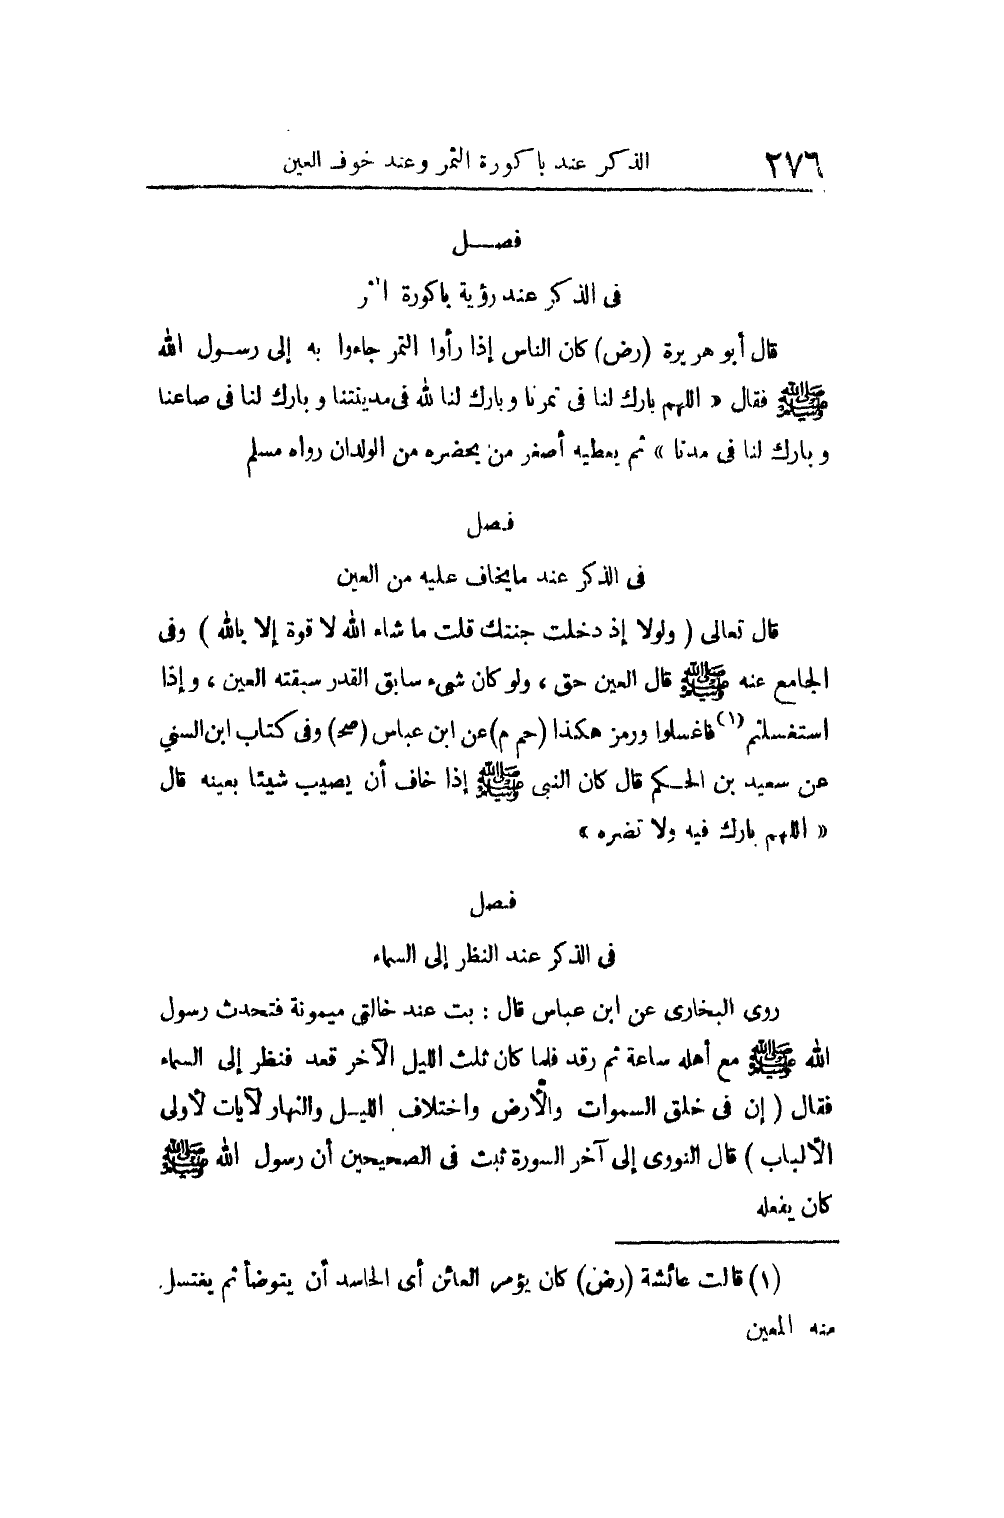 ٢٧٦ الذكر عند باكورة الثمر وعند خوف العين
فصــل
فى الذكر عند رؤية باكورة
قال أبو هريرة (رض) كان الناس إذا رأوا الثمر جاءوا به إلى رسول الله
ﷺ فقال « اللهم بارك لنا فى تمرنا وبارك لنا لله فى مدينتنا وبارك لنا فى صاعنا
وبارك لنا فى مدنا » ثم يعطيه أصغر من يحضره من الولدان رواه مسلم
فصل
فى الذكر عند مايخاف عليه من العين
قال تعالى ( ولولا إذ دخلت جنتك قلت ما شاء الله لا قوة إلا بالله ) وفى
الجامع عنه ﷺ قال العين حق ، ولو كان شىء سابق القدر سبقته العين ، وإذا
استغسلتم (١) فاغسلوا ورمز هكذا (حم م) عن ابن عباس (صح) وفى كتاب ابن السنى
عن سعيد بن الحكم قال كان النبى ﷺ إذا خاف أن يصيب شيئا بعينه قال
« اللهم بارك فيه ولا تضره »
فصل
فى الذكر عند النظر إلى السماء
روى البخارى عن ابن عباس قال : بت عند خالتى ميمونة فتحدث رسول
الله ﷺ مع أهله ساعة ثم رقد فلما كان ثلث الليل الآخر قعد فنظر إلى السماء
فقال ( إن فى خلق السموات والأرض واختلاف الليل والنهار لآيات لأولى
الألباب ) قال النووى إلى آخر السورة ثبت فى الصحيحين أن رسول الله ﷺ
كان يفعله
(١) قالت عائشة (رض) كان يؤمر العائن أى الحاسد أن يتوضأ ثم يغتسل
منه المعين